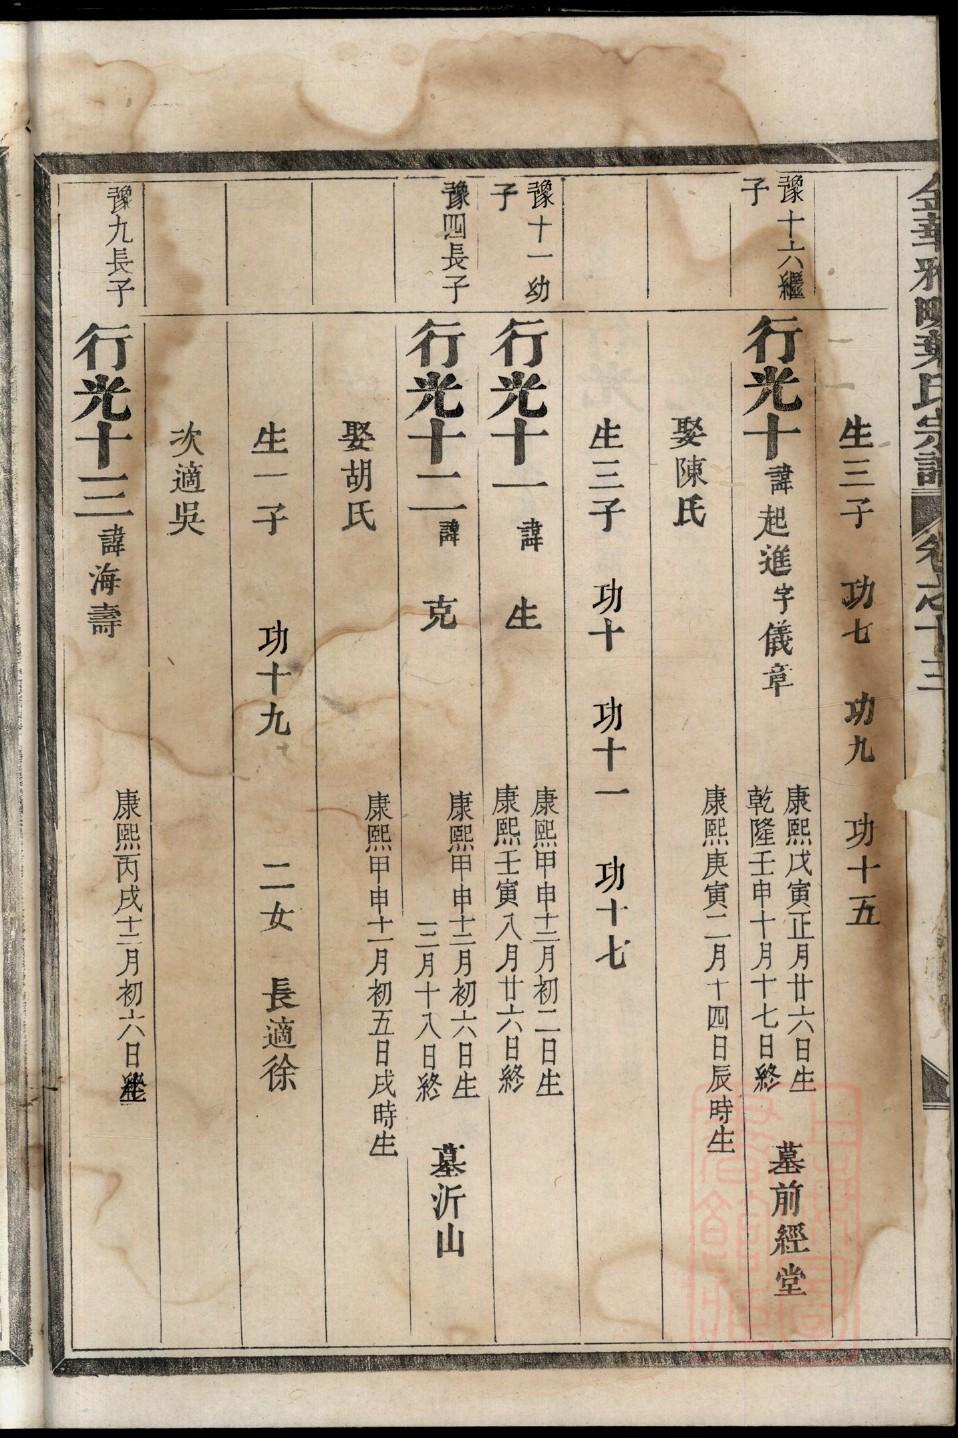 金華雅畈葉氏宗譜 卷之十三
生三子 功七 功九 功十五
豫十六繼子
行光十 諱起進字儀章 康熙戊寅正月廿六日生 乾隆壬申十月十七日終 墓前經堂
娶陳氏 康熙庚寅二月十四日辰時生
生三子 功十 功十一 功十七
豫十一幼子
行光十一 諱 生 康熙甲申十二月初二日生 康熙壬寅八月廿六日終
豫四長子
行光十二 諱 克 康熙甲申十二月初六日生 三月十八日終 墓沂山
娶胡氏 康熙甲申十一月初五日戌時生
生一子 功十九 二女 長適徐
次適吳
豫九長子
行光十三 諱海壽 康熙丙戌十二月初六日